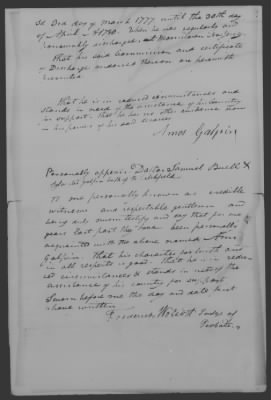 sd Ord day of March 1777 until the 30th day
of April AD 1780. When he was regularly and
honourably discharged at Morristown New Jersey
that his said Commission and certificate
of Discharge endorsed thereon are herewith
transmitted
that he is in reduced circumstances and
stands in need of the assistance of his Country
for support. that he has no other evidence now
in his power of his said services
Amos Galpin
Personally appears Doctor Samuel Buell &
both of Litchfield
to me personally known as credible
witnesses and respectable gentlemen and
being duly sworn testify and say that for
years last past they have been personally
acquainted with the above named Amos
Galpin. that his character for truth and
in all respects is good. that he is in redu-
ced circumstances & stands in need of the
assistance of his country for support
Sworn before me the day and date last
above written
Frederick Wolcott Judge of
Probate